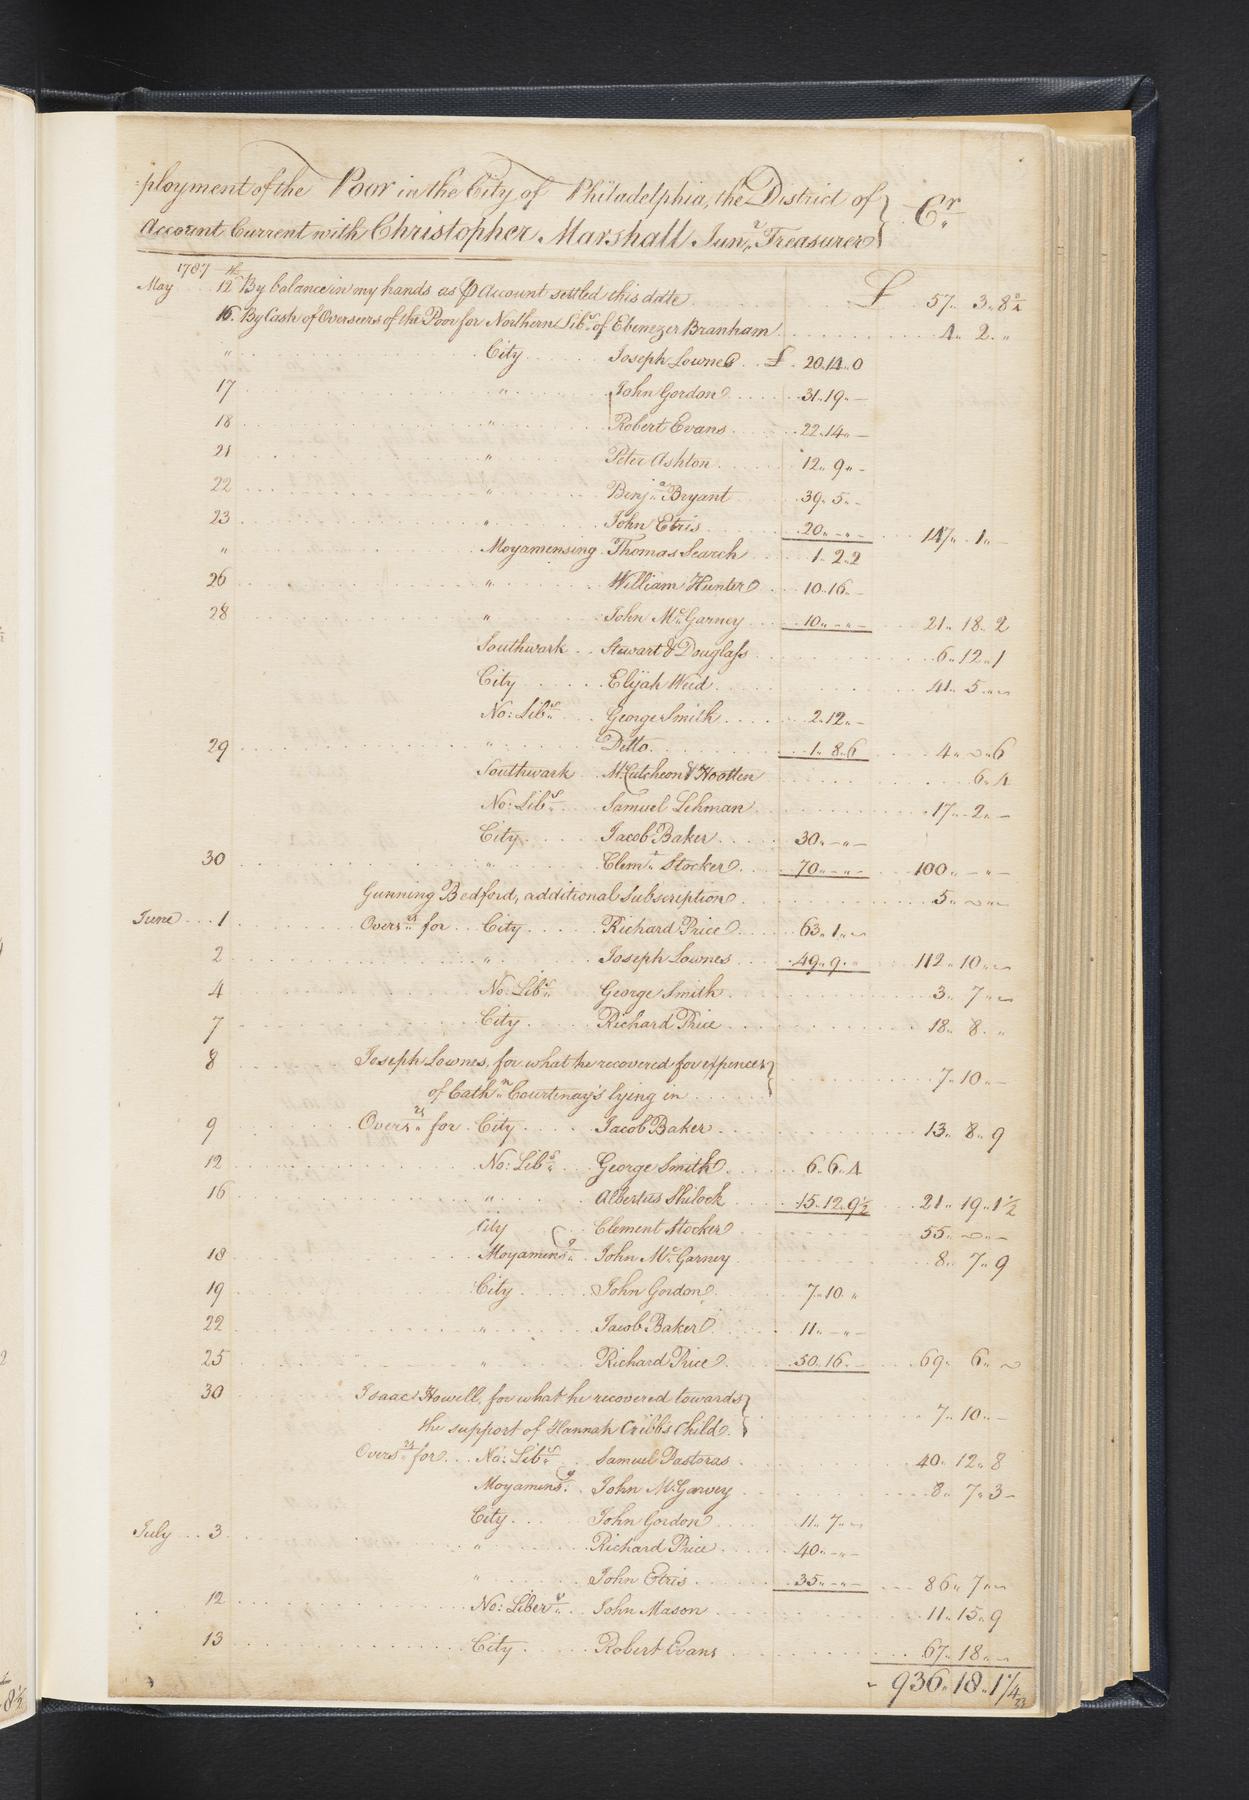 :ployment of the Poor in the City of Philadelphia, the District of } Cr
Account Current with Christopher Marshall Junr. Treasurer }
1787
May 12th By balance in my hands as ⅌ Account settled this date £ 57 .. 3 .. 8 3/4
16. By Cash of Overseers of the Poor for Northern Libs. of Ebenezer Branham 4 .. 2 .. "
" City Joseph Lownes £ 20 .. 14 .. 0
17 " John Gordon 31 .. 19 .. –
18 " Robert Evans 22 .. 14 .. –
21 " Peter Ashton 12 .. 9 .. –
22 " Benja. Bryant 39 .. 5 .. –
23 " John Etris 20 .. – .. – 147 .. 1 .. –
" Moyamensing Thomas Search 1 .. 2 .. 2
26 " William Hunter 10 .. 16 .. –
28 " John McGarney 10 .. – .. – 21 .. 18 .. 2
Southwark Stewart & Douglass 6 .. 12 .. 1
City Elijah Weed 41 .. 5 .. –
No: Libs. George Smith 2 .. 12 .. –
29 " Ditto 1 .. 8 .. 6 4 .. – .. 6
Southwark McCutcheon & Hootten 6 .. 4
No: Libs. Samuel Lehman 17 .. 2 .. –
City Jacob Baker 30 .. – .. –
30 " Clemt. Stocker 70 .. – .. – 100 .. – .. –
Gunning Bedford, additional Subscription 5 .. – .. –
June 1 Overs. for City Richard Price 63 .. 1 .. –
2 " Joseph Lownes 49 .. 9 .. " 112 .. 10 .. –
4 No: Libs. George Smith 3 .. 7 .. –
7 City Richard Price 18 .. 8 .. "
8 Joseph Lownes, for what he recovered for expences }
of Cathn. Courtenay's lying in } 7 .. 10 .. –
9 Overs. for City Jacob Baker 13 .. 8 .. 9
12 No: Libs. George Smith 6 .. 6 .. 4
16 " Albertus Shilock 15 .. 12 .. 9 1/2 21 .. 19 .. 1 1/2
City Clement Stocker 55 .. – .. –
18 Moyamensg. John McGarney 8 .. 7 .. 9
19 City John Gordon 7 .. 10 "
22 " Jacob Baker 11 .. – .. –
25 " Richard Price 50 .. 16 .. – 69 .. 6 .. –
30 Isaac Howell, for what he recovered towards }
the support of Hannah Cribbs Child } 7 .. 10 .. –
Overs. for No: Libs. Samuel Pastorus 40 .. 12 .. 8
Moyamensg. John McGarvey 8 .. 7 .. 3 –
City John Gordon 11 .. 7 .. –
July 3 " Richard Price 40 .. – .. –
" John Etris 35 .. – .. – 86 .. 7 .. –
12 No: Libers. John Mason 11 .. 15 .. 9
13 City Robert Evans 67 .. 18 .. –
936 .. 18 .. 1 1/4
8 1/2